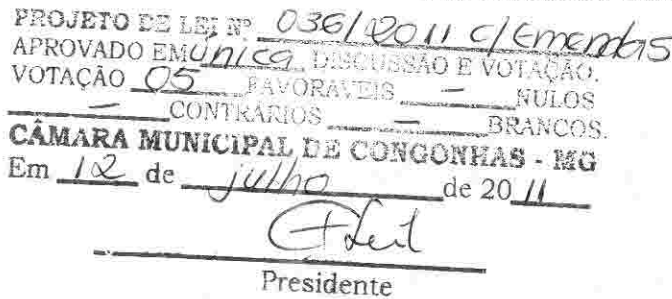 PROJETO DE LEI Nº 036/2011 c/ Emendas
APROVADO EM única DISCUSSÃO E VOTAÇÃO.
VOTAÇÃO 05 FAVORÁVEIS — NULOS
— CONTRÁRIOS — BRANCOS.
CÂMARA MUNICIPAL DE CONGONHAS - MG
Em 12 de julho de 2011
Presidente